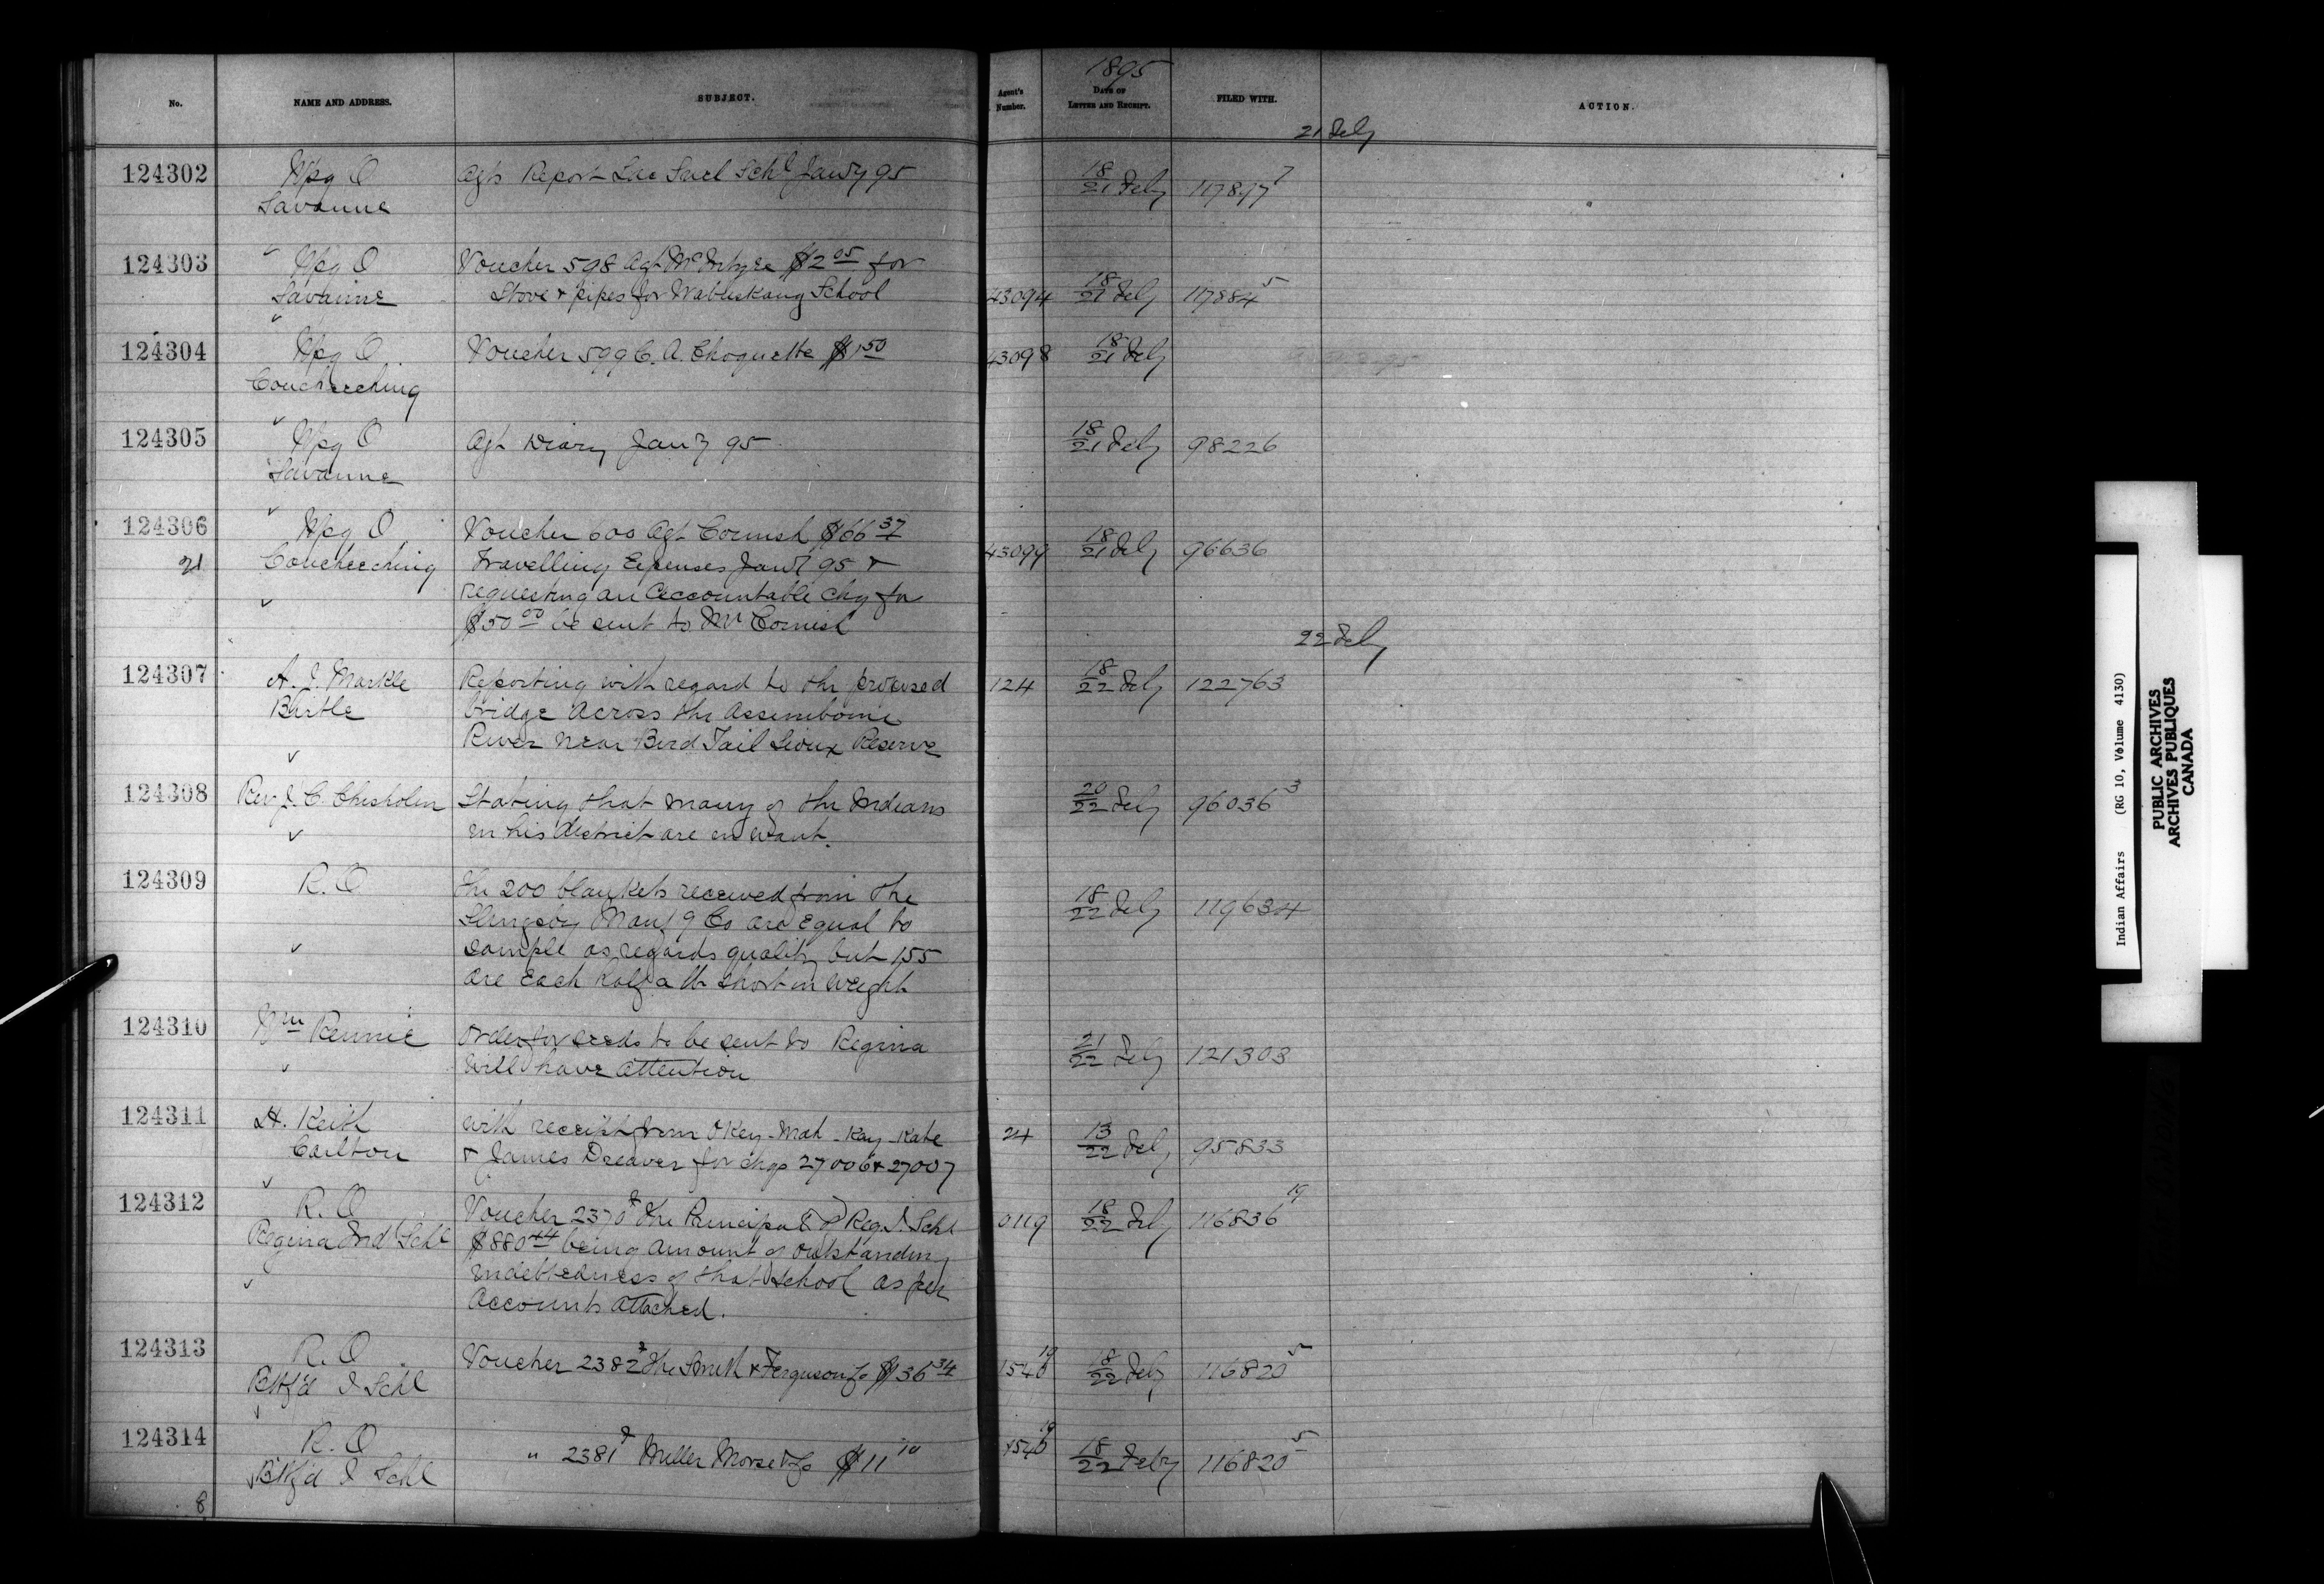 1895
No.
NAME AND ADDRESS.
SUBJECT.
Agent's Number.
DATE OF LETTER AND RECEIPT.
FILED WITH.
ACTION.
21 Feby
124302 Wpg O Agts Report Lac Suel Schl Jany 95 18/21 Feby 117877 7
Savanne
124303 Wpg O Voucher 598 Agt McIntyre $2 05 for
Savanne Stove & pipes for Wabuskang School 43094 18/21 Feby 117884 5
124304 Wpg O Voucher 599 C. A. Choquette $1 50 43098 18/21 Feby
Coucheeching
124305 Wpg O Agt Diary Jany 95 18/21 Feby 98226
Savanne
124306 Wpg O Voucher 600 Agt Cornish $66 37
21 Coucheeching Travelling Expenses Jany 95 & 43099 18/21 Feby 96636
requesting an accountable chq for
$50 00 be sent to Mr Cornish
22 Feby
124307 A. J. Markle Reporting with regard to the proposed 124 18/22 Feby 122763
Birtle bridge across the Assiniboine
River near Bird Tail Sioux Reserve
124308 Rev J. C. Chisholm Stating that many of the Indians 20/22 Feby 96036 3
in his district are in want.
124309 R. O The 200 blankets received from the
Slingsby Manfg Co are equal to 18/22 Feby 119634
sample as regards quality but 155
are each half a lb short in weight
124310 Wm Rennie Order for seeds to be sent to Regina 21/22 Feby 121303
will have attention
124311 H. Keith with receipt from Okey-Mah-Kay-Kate 24 13/22 Feby 95833
Carlton & James Dreaver for chqs 27006 & 27007
124312 R. O Voucher 2370 The Principal of Reg. I. Schl 0119 18/22 Feby 116836 19
Regina Ind Schl $880 44 being amount of outstanding
indebtedness of that school as per
accounts attached.
124313 R. O Voucher 2382 The Smith & Ferguson Co $36 34 1540 19 18/22 Feby 116820 5
Btlf'd I Schl
124314 R. O " 2381 Miller Morse & Co $11 10 1540 19 18/22 Feby 116820 5
Btlf'd I Schl
8
Indian Affairs (RG 10, Volume 4130)
PUBLIC ARCHIVES
ARCHIVES PUBLIQUES
CANADA